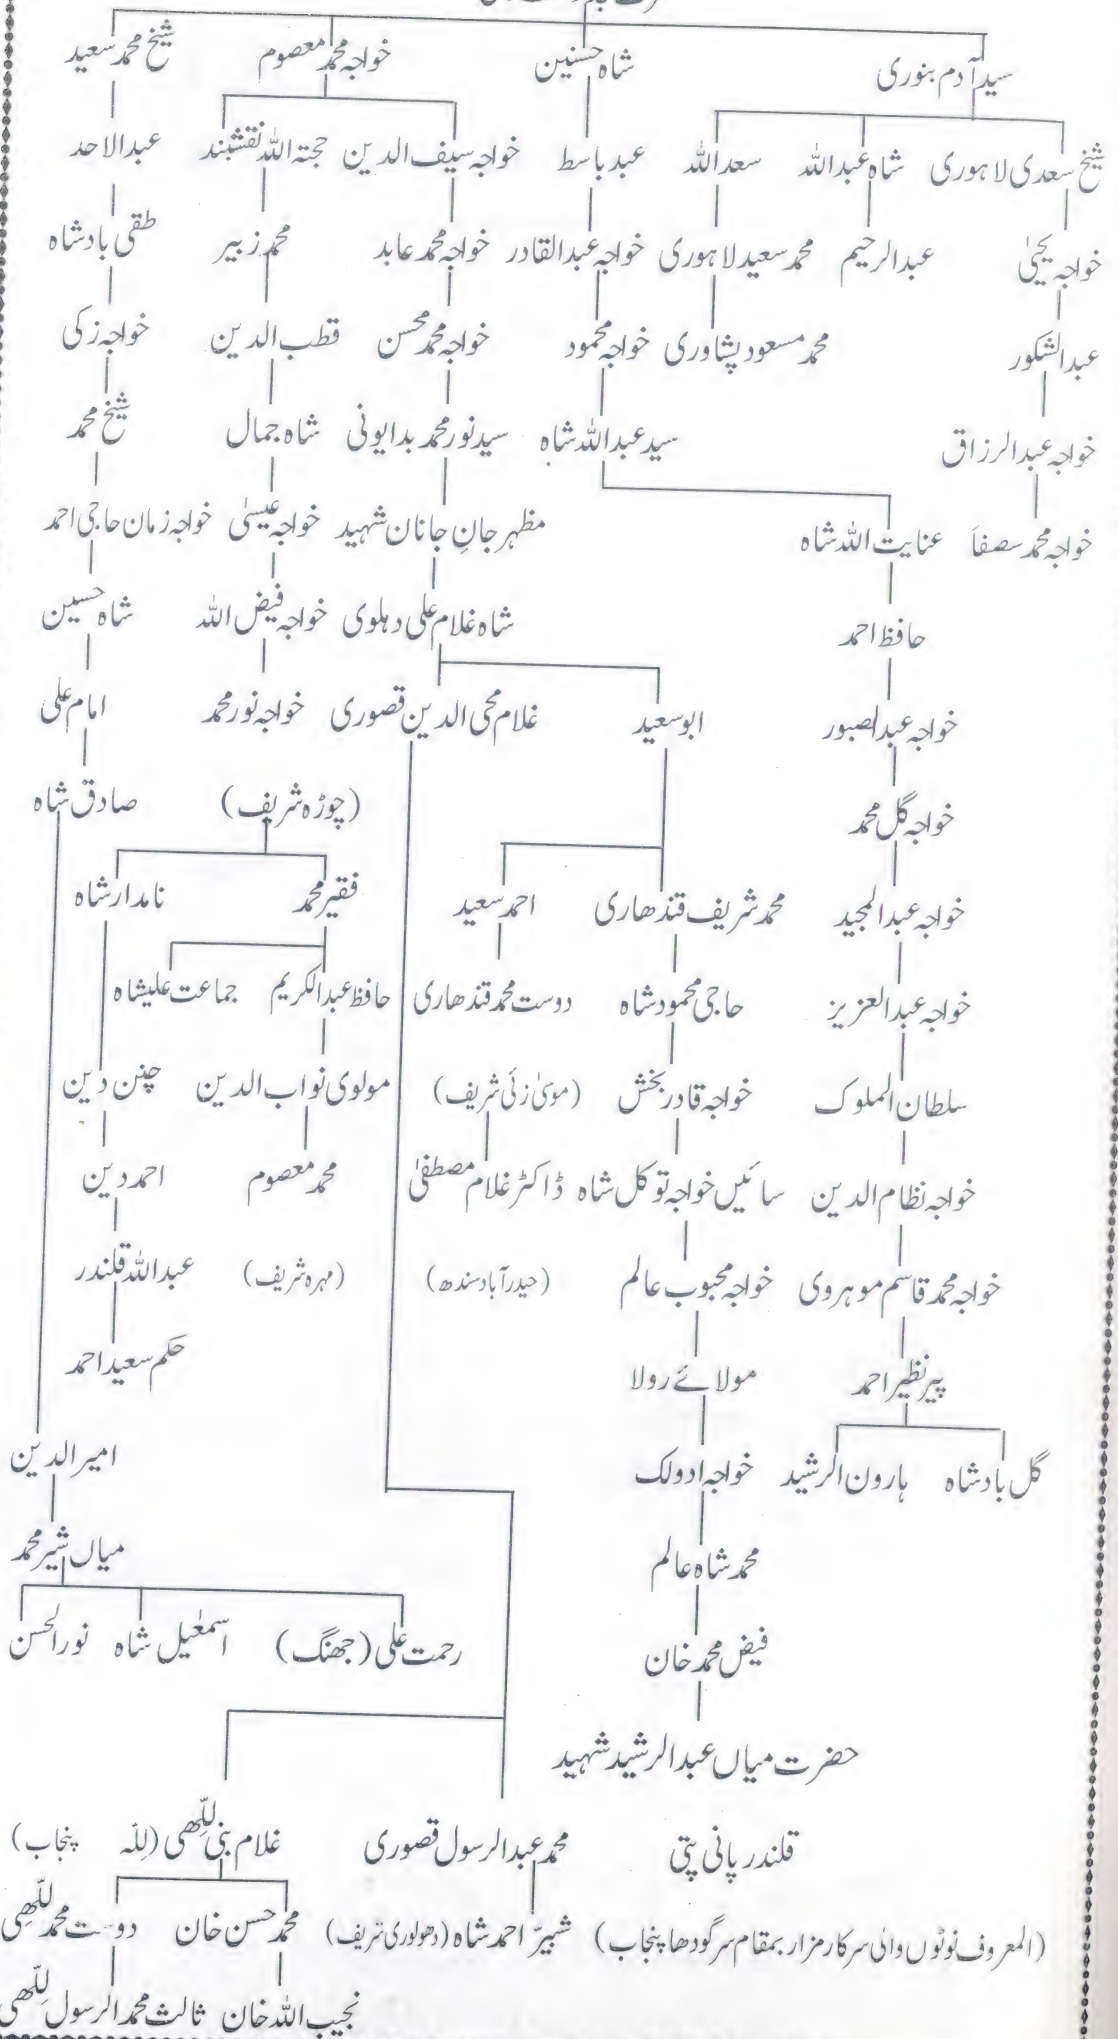 سید آدم بنوری شاہ حسنین خواجہ محمد معصوم شیخ محمد سعید
شیخ سعدی لاہوری شاہ عبداللہ سعد اللہ عبد باسط خواجہ سیف الدین حجتہ اللہ نقشبند عبدالاحد
خواجہ یحیٰی عبدالرحیم محمد سعید لاہوری خواجہ عبدالقادر خواجہ محمد عابد محمد زبیر طقی بادشاہ
عبدالشکور محمد مسعود پشاوری خواجہ محمود خواجہ محمد محسن قطب الدین خواجہ زکی
خواجہ عبدالرزاق سید عبداللہ شاہ سید نور محمد بدایونی شاہ جمال شیخ محمد
خواجہ محمد سصفاَ عنایت اللہ شاہ مظہر جانِ جانان شہید خواجہ عیسٰی خواجہ زمان حاجی احمد
حافظ احمد شاہ غلام علی دہلوی خواجہ فیض اللہ شاہ حسین
خواجہ عبدالصبور ابو سعید غلام محی الدین قصوری خواجہ نور محمد امام علی
خواجہ گل محمد (چورہ شریف) صادق شاہ
خواجہ عبدالمجید محمد شریف قندھاری احمد سعید فقیر محمد نامدار شاہ
خواجہ عبدالعزیز حاجی محمود شاہ دوست محمد قندھاری حافظ عبدالکریم جماعت علیشاہ
سلطان الملوک خواجہ قادر بخش (موسیٰ زئی شریف) مولوی نواب الدین چنن دین
خواجہ نظام الدین سائیں خواجہ توکل شاہ ڈاکٹر غلام مصطفٰی محمد معصوم احمد دین
خواجہ محمد قاسم موہروی خواجہ محبوب عالم (حیدرآباد سندھ) (مہرہ شریف) عبداللہ قلندر
پیر نظیر احمد مولائے رولا حکم سعید احمد
گل بادشاہ ہارون الرشید خواجہ ادولک امیر الدین
محمد شاہ عالم میاں شیر محمد
فیض محمد خان رحمت علی (جھنگ) اسمٰعیل شاہ نور الحسن
حضرت میاں عبدالرشید شہید
قلندر پانی پتی محمد عبدالرسول قصوری غلام بنی للّٰھی (للّہ پنجاب)
(المعروف نوٹوں والی سرکار مزار بمقام سرگودھا پنجاب) شبیرّ احمد شاہ (دھولوری شریف) محمد حسن خان دوست محمد للّٰھی
نجیب اللہ خان ثالث محمد الرسول للّٰھی